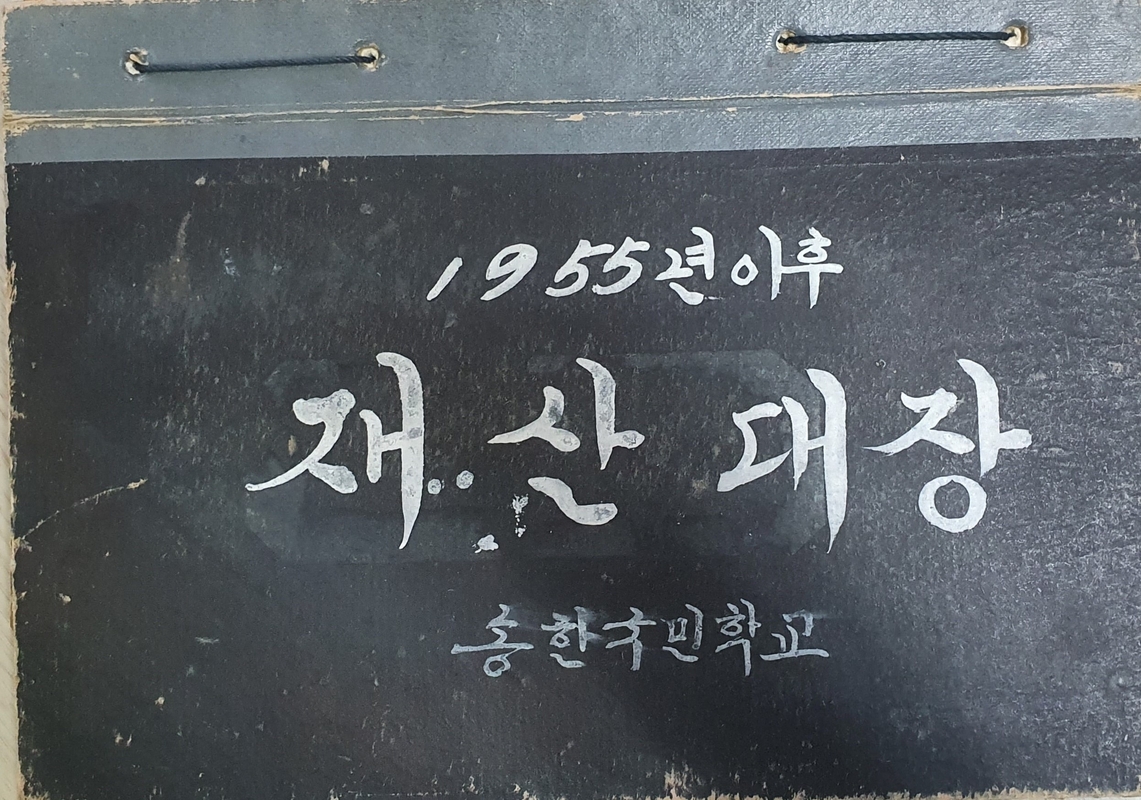 1955년이후
재산 대장
송한국민학교